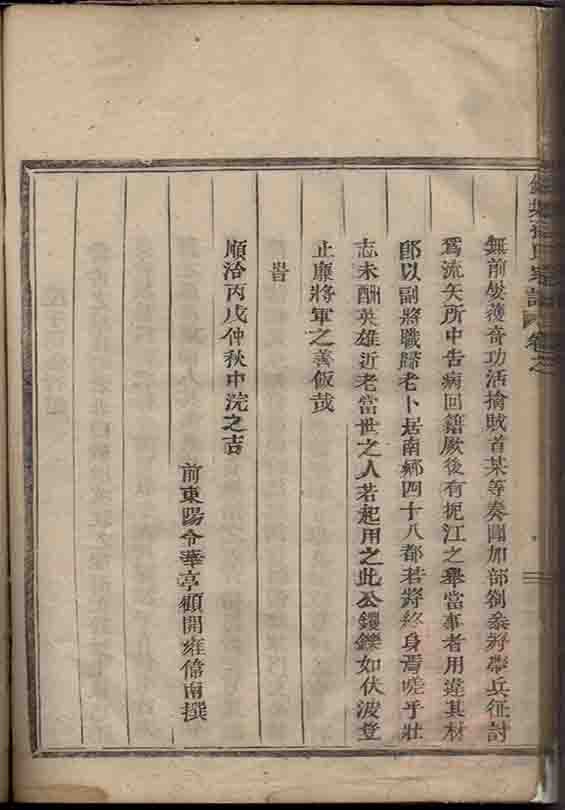 無前俊獲奇功活擒賊首某等奏聞加部劄叅將舉兵征討
爲流矢所中告病回籍厥後有扼江之舉當事者用違其材
郎以副將職歸老卜居南鄉四十八都若將終身焉嗟乎壯
志未酬英雄近老當世之人若起用之此公钁鑠如伏波豈
止廉將軍之善飯哉
旹
順治丙戌仲秋中浣之吉
前東陽令華亭顧開雍偉南撰
氏宗譜 卷之